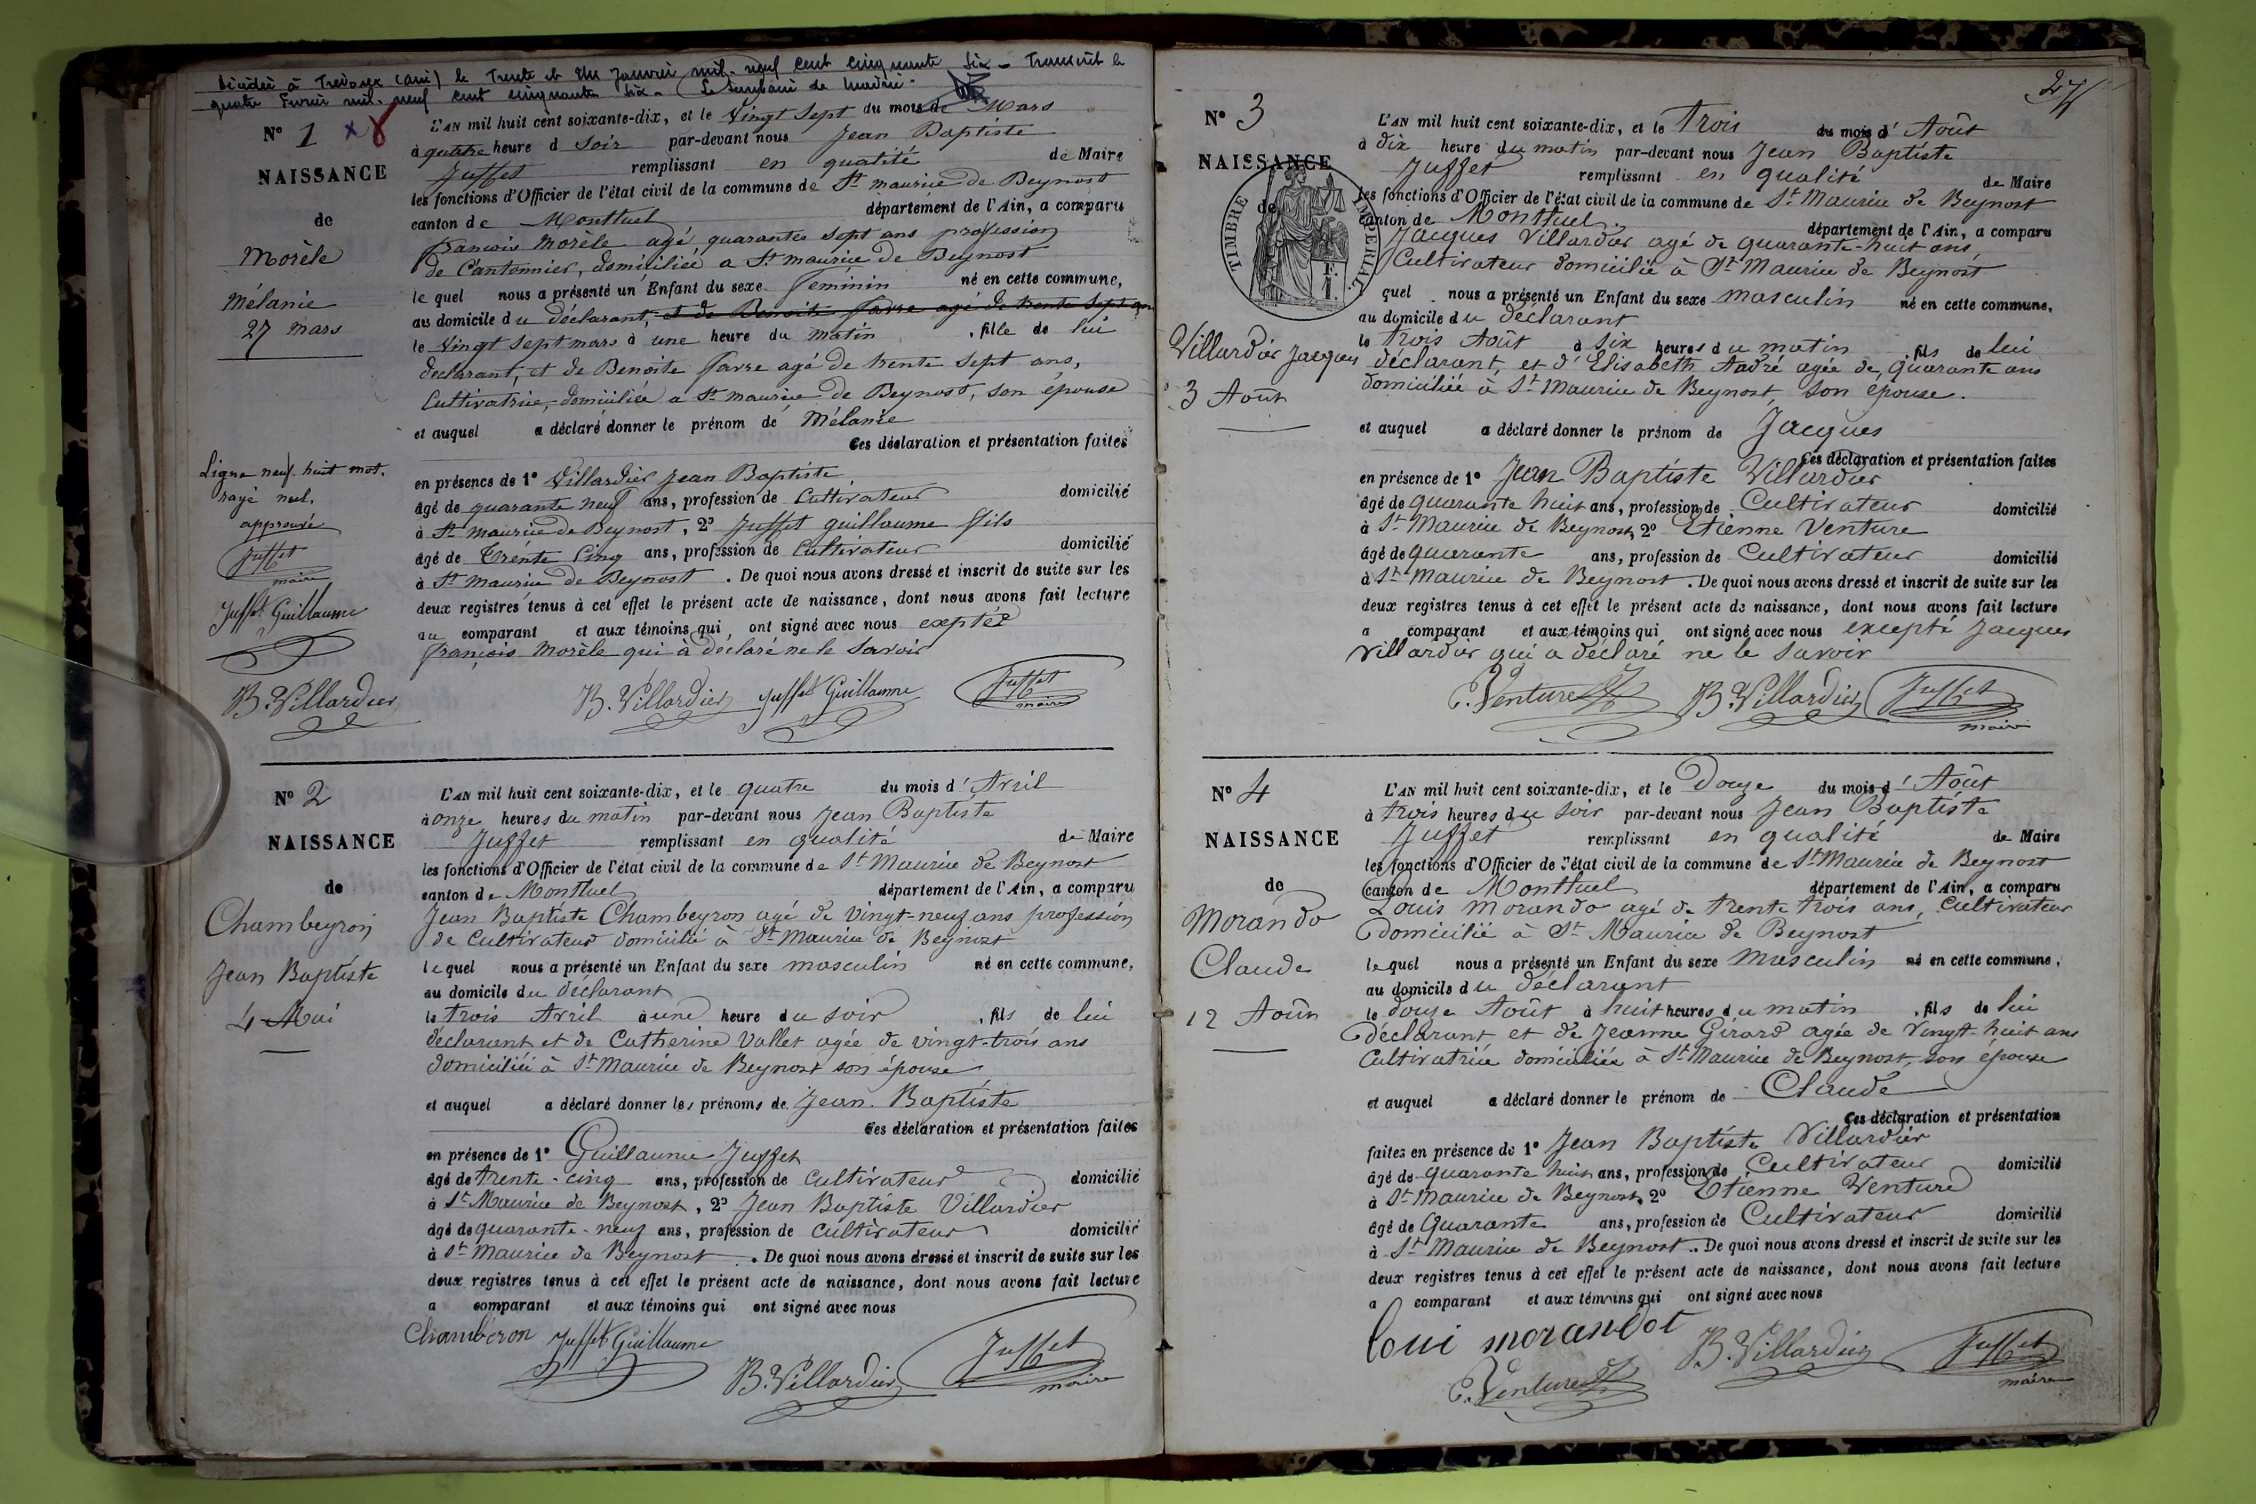 Décédée à Trévoux (Ain) le Trente et Un Janvier mil-neuf cent cinquante six - Transcrit le
quatre Fevrier mil-neuf cent cinquante six - Le
N° 1
NAISSANCE
de
Morèle
Mélanie
27 mars
Ligne neuf. huit mot.
rayé nul.
approuvé
Juffet
maire
Juffet Guillaume
B. Villardier
L'AN mil huit cent soixante-dix, et le Vingt Sept du mois de Mars
à quatre heure d Soir par-devant nous Jean Baptiste
Juffet remplissant en qualité de Maire
les fonctions d'Officier de l'état civil de la commune de St maurice de Beynost
canton de Montluel département de l'Ain, a comparu
François Morèle agé quarantes sept ans profession
de Cantonnier, domiciliée a St maurice de Beynost
le quel nous a présenté un Enfant du sexe Féminin né en cette commune,
au domicile du déclarant, et de Benoite Favre agé de trente Sept ans
le Vingt Sept mars à une heure du matin, fille de lui
déclarant, et de Benoite Favre agé de trente Sept ans,
Cultivatrice, domiciliée a St maurice de Beynost, son épouse
et auquel a déclaré donner le prénom de Mélanie
Ces déclaration et présentation faites
en présence de 1° Villardier Jean Baptiste
âgé de quarante neuf ans, profession de Cultivateur domicilié
à St maurice de Beynost, 2° Juffet guillaume fils
âgé de Trente Cinq ans, profession de Cultivateur domicilié
à St maurice de Beynost. De quoi nous avons dressé et inscrit de suite sur les
deux registres tenus à cet effet le présent acte de naissance, dont nous avons fait lecture
au comparant et aux témoins qui ont signé avec nous exptéz
françois Morèle qui à déclaré ne le Savoir
B. Villardier Juffet Guillaume Juffet
maire
N° 2
NAISSANCE
de
Chambeyron
Jean Baptiste
4 Mai
L'AN mil huit cent soixante-dix, et le quatre du mois d' Avril
à onze heures du matin par-devant nous Jean Baptiste
Juffet remplissant en qualité de Maire
les fonctions d'Officier de l'état civil de la commune de St Maurice de Beynost
canton de Montluel département de l'Ain, a comparu
Jean Baptiste Chambeyron agé de vingt-neuf ans profession
de Cultivateur domicilié à St Maurice de Beynost
le quel nous a présenté un Enfant du sexe masculin né en cette commune,
au domicile du déclarant
le trois Avril à une heure du soir, fils de lui
déclarant et de Catherine Vallet agée de vingt-trois ans
domiciliée à St Maurice de Beynost son épouse
et auquel a déclaré donner les prénoms de Jean Baptiste
Ces déclaration et présentation faites
en présence de 1° Guillaume Juffet
âgé de trente-cinq ans, profession de cultivateur domicilié
à St Maurice de Beynost, 2° Jean Baptiste Villardier
âgé de quarante-neuf ans, profession de cultivateur domicilié
à St Maurice de Beynost. De quoi nous avons dressé et inscrit de suite sur les
deux registres tenus à cet effet le présent acte de naissance, dont nous avons fait lecture
a comparant et aux témoins qui ont signé avec nous
Chamberon Juffet Guillaume
B. Villardier Juffet
maire
27
N° 3
NAISSANCE
de
TIMBRE IMPERIAL
Villardier Jacques
3 Août
L'AN mil huit cent soixante-dix, et le Trois du mois d' Août
à dix heure du matin par-devant nous Jean Baptiste
Juffet remplissant en qualité de Maire
les fonctions d'Officier de l'état civil de la commune de St Maurice de Beynost
canton de Montluel département de l'Ain, a comparu
Jacques Villardier agé de quarante-huit ans,
Cultivateur domicilié à St Maurice de Beynost
quel nous a présenté un Enfant du sexe masculin né en cette commune,
au domicile du déclarant
le trois Août à six heures du matin, fils de lui
déclarant, et d'Elisabeth André agée de quarante ans
domiciliée à St Maurice de Beynost, son épouse.
et auquel a déclaré donner le prénom de Jacques
Ces déclaration et présentation faites
en présence de 1° Jean Baptiste Villardier
âgé de quarante huit ans, profession de Cultivateur domicilié
à St Maurice de Beynost, 2° Etienne Venture
âgé de quarante ans, profession de Cultivateur domicilié
à St Maurice de Beynost. De quoi nous avons dressé et inscrit de suite sur les
deux registres tenus à cet effet le présent acte de naissance, dont nous avons fait lecture
a comparant et aux témoins qui ont signé avec nous excepté Jacques
Villardier qui a déclaré ne le savoir
E. Venture B. Villardier Juffet
maire
N° 4
NAISSANCE
de
Morando
Claude
12 Août
L'AN mil huit cent soixante-dix, et le Douze du mois d' Août
à trois heures du soir par-devant nous Jean Baptiste
Juffet remplissant en qualité de Maire
les fonctions d'Officier de l'état civil de la commune de St Maurice de Beynost
canton de Montluel département de l'Ain, a comparu
Louis Morando agé de trente trois ans, Cultivateur
domicilié à St Maurice de Beynost
le quel nous a présenté un Enfant du sexe Masculin né en cette commune,
au domicile du déclarant
le douze Août à huit heures du matin, fils de lui
déclarant et de Jeanne Girard agée de vingt huit ans
Cultivatrice domiciliée à St Maurice de Beynost, son épouse
et auquel a déclaré donner le prénom de Claude
Ces déclaration et présentation
faites en présence de 1° Jean Baptiste Villardier
âgé de quarante huit ans, profession de Cultivateur domicilié
à St Maurice de Beynost, 2° Etienne Venture
âgé de Quarante ans, profession de Cultivateur domicilié
à St Maurice de Beynost. De quoi nous avons dressé et inscrit de suite sur les
deux registres tenus à cet effet le présent acte de naissance, dont nous avons fait lecture
a comparant et aux témoins qui ont signé avec nous
Loui morandot B. Villardier Juffet
maire
E. Venture